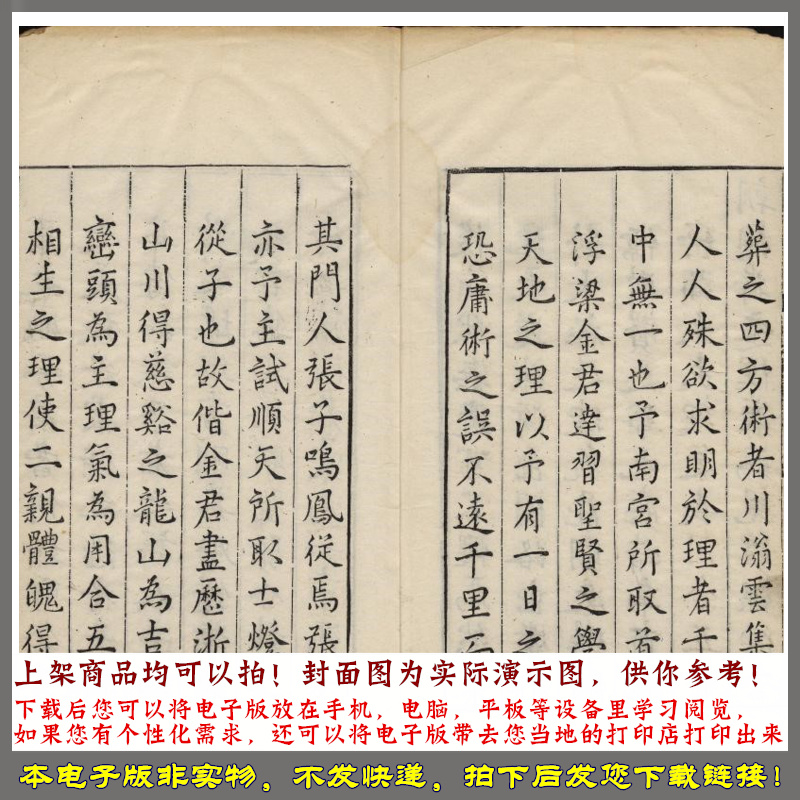 葬之四方術者川滃雲集
人人殊欲求明於理者千
中無一也予南宮所取首
浮梁金君達習聖賢之學
天地之理以予有一日之
恐庸術之誤不遠千里
其門人張子鳴鳳從焉張
亦予主試順天所取士燈
從子也故偕金君盡歷浙
山川得慈谿之龍山為吉
巒頭為主理氣為用合五
相生之理使二親體魄得
上架商品均可以拍！封面图为实际演示图，供你参考！
下载后您可以将电子版放在手机，电脑，平板等设备里学习阅览，
如果您有个性化需求，还可以将电子版带去您当地的打印店打印出来
本电子版非实物，不发快递，拍下后发您下载链接！